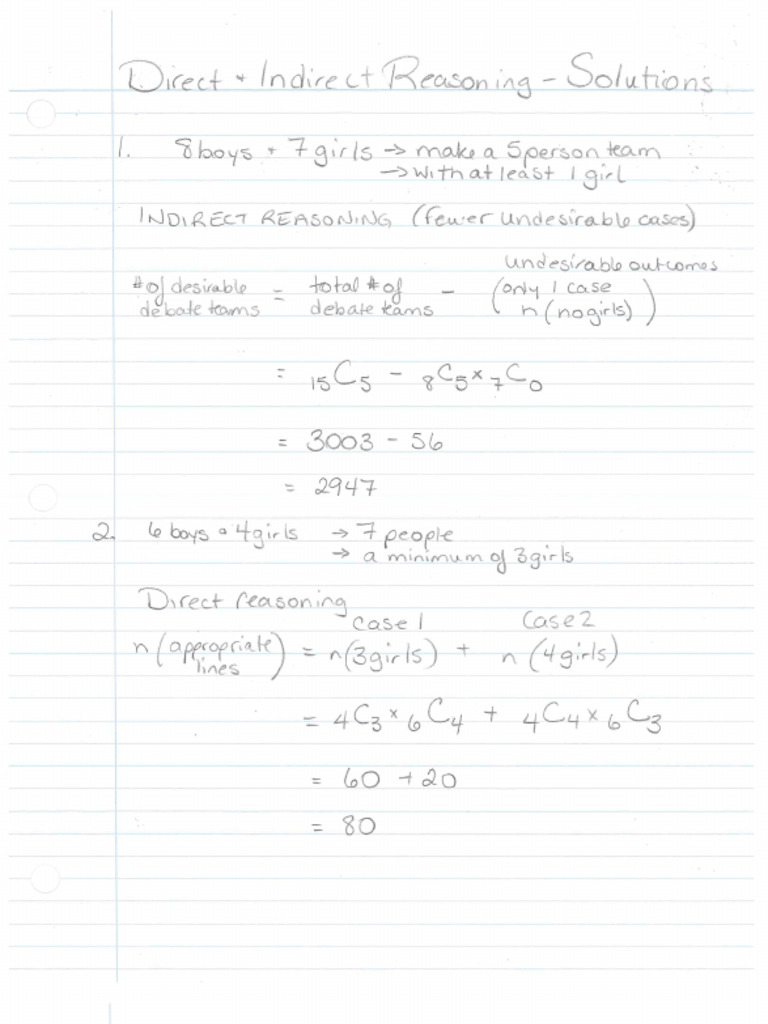 Direct + Indirect Reasoning - Solutions
1. 8 boys + 7 girls → make a 5 person team
→ with at least 1 girl
INDIRECT REASONING (fewer undesirable cases)
undesirable outcomes
# of desirable debate teams = total # of debate teams - (only 1 case n (no girls))
= ₁₅C₅ - ₈C₅ × ₇C₀
= 3003 - 56
= 2947
2. 6 boys + 4 girls → 7 people
→ a minimum of 3 girls
Direct reasoning
case 1 Case 2
n (appropriate lines) = n (3 girls) + n (4 girls)
= ₄C₃ × ₆C₄ + ₄C₄ × ₆C₃
= 60 + 20
= 80